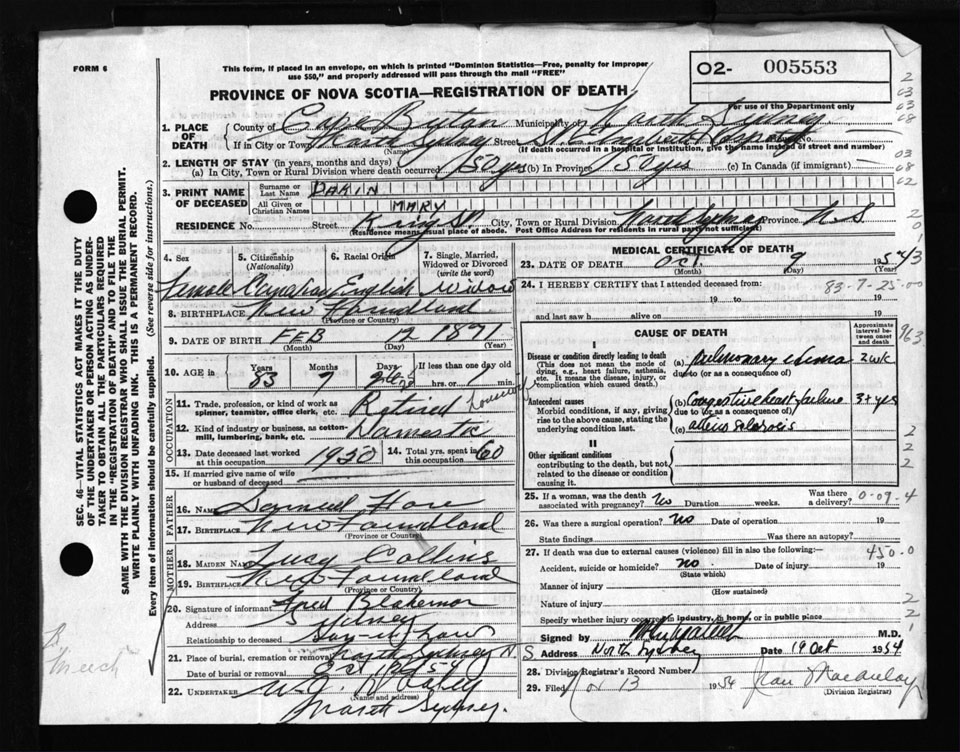 FORM 6
This form, if placed in an envelope, on which is printed "Dominion Statistics—Free, penalty for improper
use $50," and properly addressed will pass through the mail "FREE"
O2- 005553
PROVINCE OF NOVA SCOTIA—REGISTRATION OF DEATH
For use of the Department only
1. PLACE OF DEATH
County of Cape Breton Municipality of North Sydney
If in City or Town North Sydney Street No.
(Name) (If death occurred in a hospital or institution, give the name instead of street and number)
2. LENGTH OF STAY (in years, months and days)
(a) In City, Town or Rural Division where death occurred 50 yrs (b) In Province 50 yrs (c) In Canada (if immigrant)
3. PRINT NAME OF DECEASED
Surname or Last Name DAKIN
All Given or Christian Names MARY
RESIDENCE No. Street King St. City, Town or Rural Division North Sydney Province N S
(Residence means usual place of abode. Post Office Address for residents in rural parts not sufficient)
4. Sex 5. Citizenship (Nationality) 6. Racial Origin 7. Single, Married, Widowed or Divorced (write the word)
Female Canadian English Widow
8. BIRTHPLACE New Foundland
(Province or Country)
9. DATE OF BIRTH FEB 12 1871
(Month) (Day) (Year)
10. AGE in Years Months Days If less than one day old
83 7 hrs. or min.
OCCUPATION
11. Trade, profession, or kind of work as spinner, teamster, office clerk, etc. Retired
12. Kind of industry or business, as cotton-mill, lumbering, bank, etc. Domestic
13. Date deceased last worked at this occupation 1920 14. Total yrs. spent in this occupation 60
15. If married give name of wife or husband of deceased
FATHER
16. NAME Samuel
17. BIRTHPLACE New Foundland
(Province or Country)
MOTHER
18. MAIDEN NAME Lucy Collins
19. BIRTHPLACE New Foundland
(Province or Country)
20. Signature of informant Fred
Address Sydney
Relationship to deceased Son-in-Law
21. Place of burial, cremation or removal North Sydney N.S
Date of burial or removal
22. UNDERTAKER
(Name and address)
North Sydney.
MEDICAL CERTIFICATE OF DEATH
23. DATE OF DEATH Oct 9 1954
(Month) (Day) (Year)
24. I HEREBY CERTIFY that I attended deceased from:
83-7-25-00
19 to 19
and last saw h alive on 19
CAUSE OF DEATH
Approximate interval between onset and death
I
Disease or condition directly leading to death (a) Pulmonary edema 2 wk
(This does not mean the mode of dying, e.g., heart failure, asthenia, etc. It means the disease, injury, or complication which caused death.)
due to (or as a consequence of)
Antecedent causes (b) Congestive heart failure 3+ yrs
Morbid conditions, if any, giving rise to the above cause, stating the underlying condition last.
due to (or as a consequence of)
(c)
II
Other significant conditions
contributing to the death, but not related to the disease or condition causing it.
25. If a woman, was the death associated with pregnancy? No Duration weeks. Was there a delivery?
0-09-4
26. Was there a surgical operation? No Date of operation 19
State findings Was there an autopsy?
27. If death was due to external causes (violence) fill in also the following:
450-0
Accident, suicide or homicide? No Date of injury 19
(State which)
Manner of injury
(How sustained)
Nature of injury
Specify whether injury occurred in industry, in home, or in public place
Signed by M.D.
Address North Sydney Date 19 Oct 1954
28. Division Registrar's Record Number
29. Filed 13 1954 Jean Macaulay
(Division Registrar)
SEC. 46—VITAL STATISTICS ACT MAKES IT THE DUTY
OF THE UNDERTAKER OR PERSON ACTING AS UNDER-
TAKER TO OBTAIN ALL THE PARTICULARS REQUIRED
IN THE "REGISTRATION OF DEATH" AND TO FILE THE
SAME WITH THE DIVISION REGISTRAR WHO SHALL ISSUE THE BURIAL PERMIT.
WRITE PLAINLY WITH UNFADING INK. THIS IS A PERMANENT RECORD.
Every item of information should be carefully supplied. (See reverse side for instructions.)